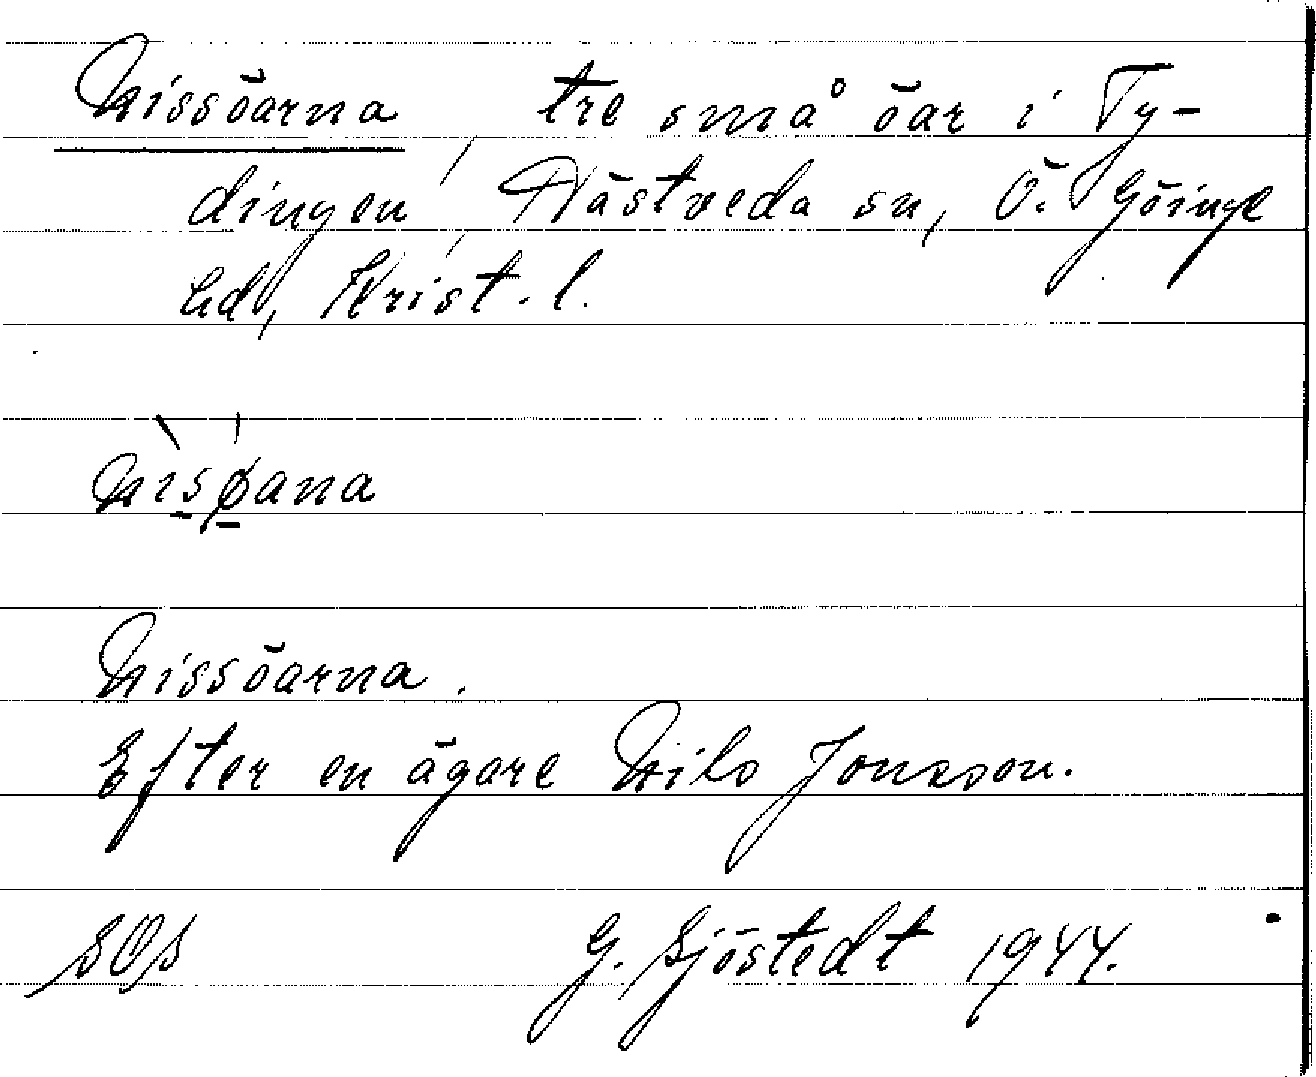 Nissöarna, tre små öar i Ty-
dingen, Hästveda sn, Ö. Göinge
hd, Krist. l.
nìsø̍ana
Nissöarna.
Efter en ägare Nils Jonsson.
SOS G. Sjöstedt 1944.